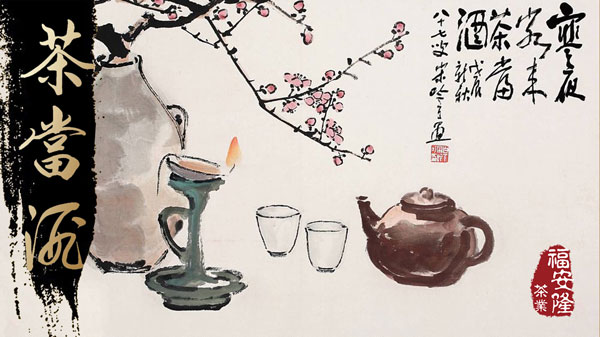 寒夜
客来
茶當
酒
戊辰
新秋
八十七叟宋吟可画
茶當酒
福安隆
茶業